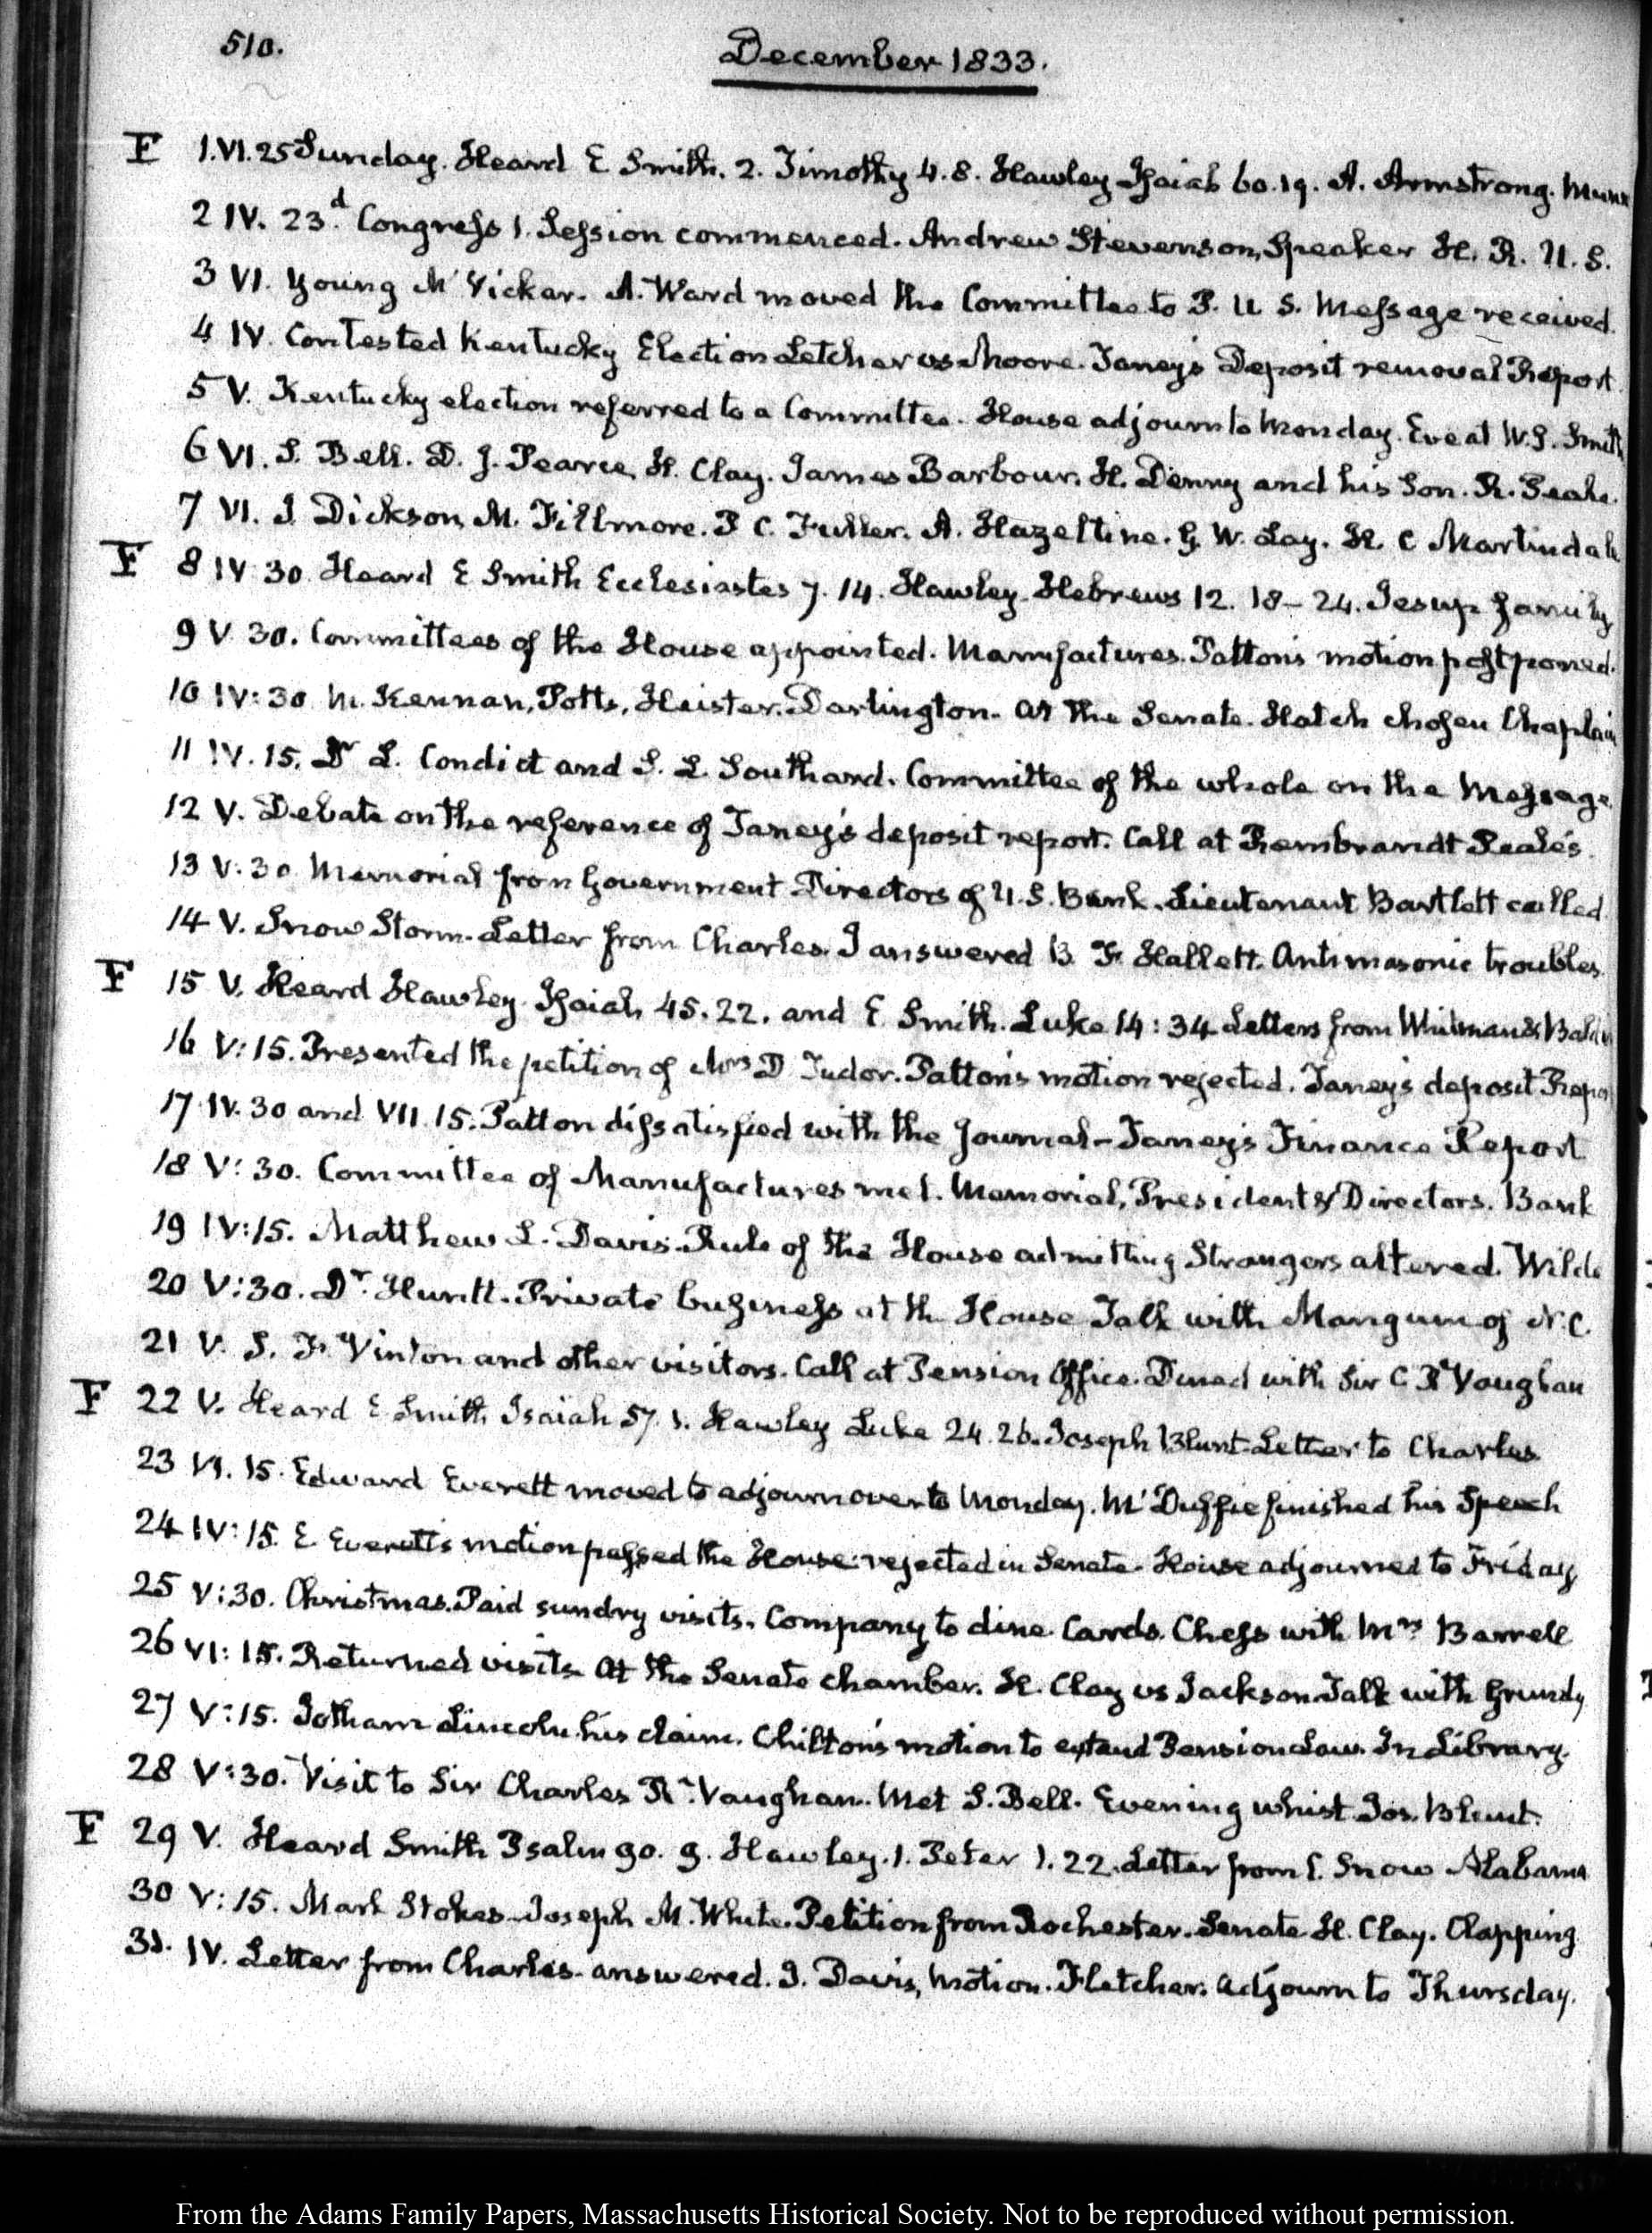 510.
December 1833.
F 1. VI. 25 Sunday. Heard E Smith. 2. Timothy 4. 8. Hawley Isaiah 60. 19. A. Armstrong.
2 IV. 23d. Congress 1. Session commenced. Andrew Stevenson, Speaker H. R. U. S.
3 VI. Young McVickar. A. Ward moved the Committee to P. U S. Message received.
4 IV. Contested Kentucky Election Letcher vs Moore. Taney's Deposit removal Report.
5 V. Kentucky election referred to a Committee. House adjourn to Monday. Eve at W. S. Smith
6 VI. S. Bell. D. J. Pearce, H. Clay. James Barbour. H. Denny and his Son. R. Peale.
7 VI. J Dickson, M. Fillmore. P C. Fuller. A. Hazeltine. G. W. Lay. H. C Martindale
F 8 IV 30. Heard E Smith Ecclesiastes 7. 14. Hawley. Hebrews 12. 18–24. Jesup family
9 V 30. Committees of the House appointed. Manufactures. Patton's motion postponed.
10 IV: 30 M. Kennan, Potts, Heister. Darlington. At the Senate. Hatch chosen Chaplain
11 IV. 15. Dr L. Condict and S. L. Southard. Committee of the whole on the Message.
12 V. Debate on the reference of Taney's deposit report. Call at Rembrandt Peale's.
13 V: 30 Memorial from Government Directors of U. S. Bank. Lieutenant Bartlett called.
14 V. Snow Storm. Letter from Charles. I answered B. F. Hallett. Antimasonic troubles.
F 15 V. Heard Hawley Isaiah 45. 22. and E Smith. Luke 14: 34 Letters from Whitman &
16 V: 15. Presented the petition of Mrs D Tudor. Patton's motion rejected. Taney's deposit Repor
17 IV. 30 and VII. 15. Patton dissatisfied with the Journal – Taney's Finance Report
18 V: 30. Committee of Manufactures met. Memorial, President & Directors. Bank
19 IV: 15. Matthew L. Davis. Rule of the House admitting Strangers altered. Wilde
20 V: 30. Dr. Huntt. Private business at the House Talk with Mangum of N. C.
21 V. S. F. Vinton and other visitors. Call at Pension Office. Dined with Sir C R Vaughan
F 22 V. Heard E Smith Isaiah 57. 1. Hawley Luke 24. 26. Joseph Blunt. Letter to Charles
23 VI. 15. Edward Everett moved to adjourn over to Monday. McDuffie finished his Speech
24 IV: 15. E. Everett's motion passed the House: rejected in Senate. House adjourned to Friday
25 V: 30. Christmas. Paid sundry visits. Company to dine. Cards. Chess with Mrs Barrell
26 VI: 15. Returned visits. At the Senate chamber. H. Clay vs Jackson. Talk with Grundy
27 V: 15. Jotham Lincoln his claim. Chilton's motion to extend Pension Law. In Library.
28 V: 30. Visit to Sir Charles R. Vaughan. Met S. Bell. Evening whist Jos. Blunt.
F 29 V. Heard Smith Psalm 90. 9. Hawley. 1. Peter 1. 22. Letter from C. Snow Alabama
30 V: 15. Mark Stokes. Joseph M. White. Petition from Rochester. Senate H. Clay. Clapping
31. IV. Letter from Charles. answered. J. Davis, Motion. Fletcher. Adjourn to Thursday.
From the Adams Family Papers, Massachusetts Historical Society. Not to be reproduced without permission.